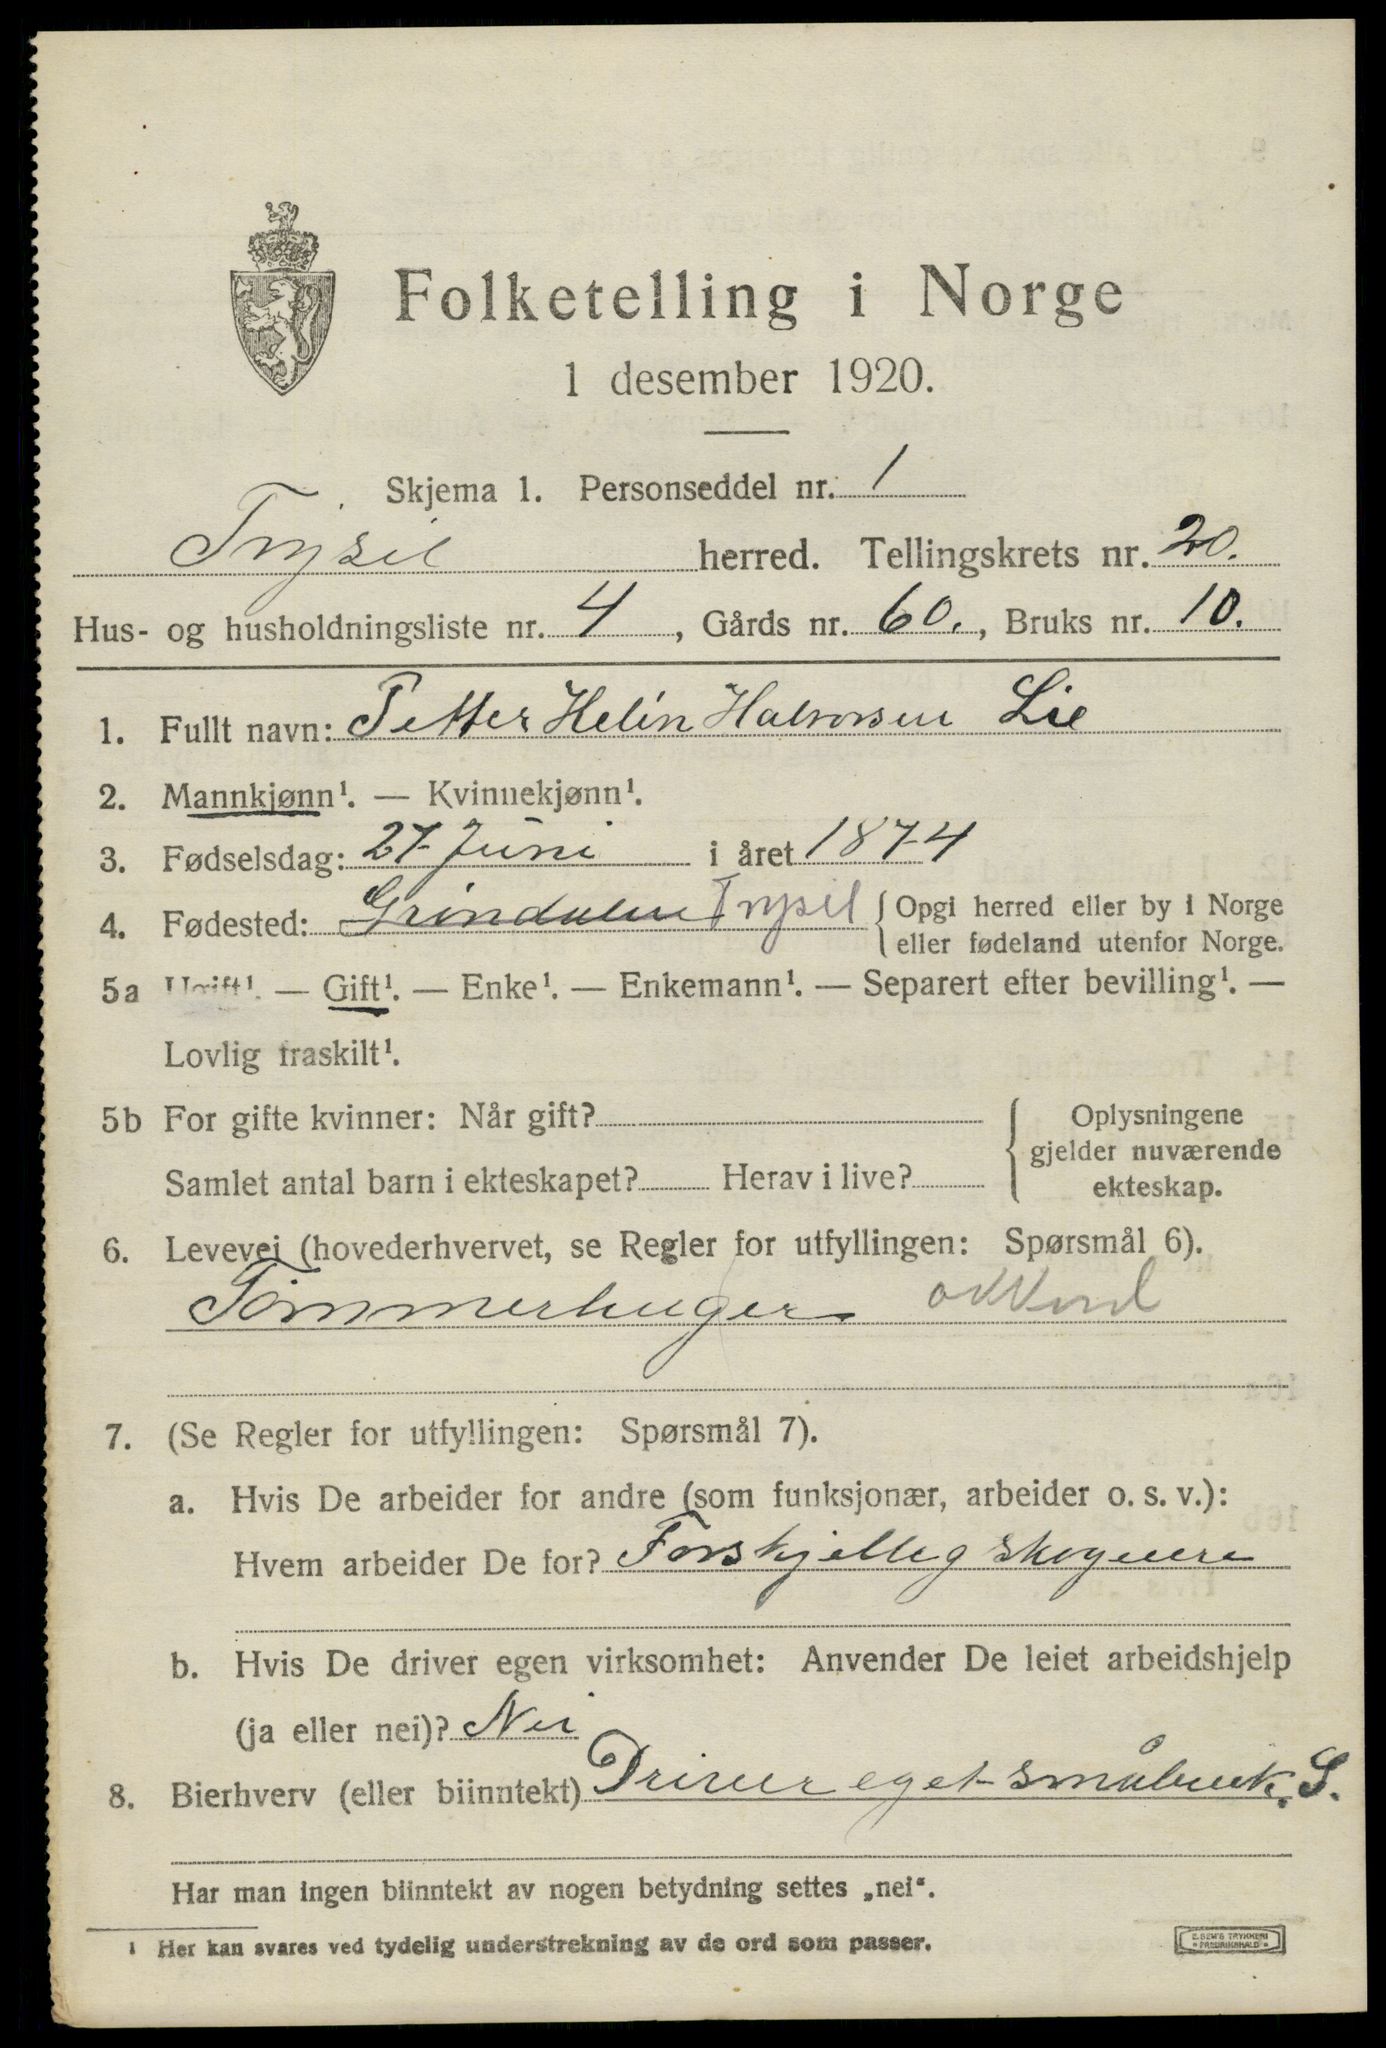 Folketelling i Norge
1 desember 1920.
Skjema 1. Personseddel nr. 1
Trysil herred. Tellingskrets nr. 20.
Hus- og husholdningsliste nr. 4, Gårds nr. 60., Bruks nr. 10.
1. Fullt navn: Petter Helin Halvorsen Lie
2. Mannkjønn¹. — Kvinnekjønn¹.
3. Fødselsdag: 27 Juni i året 1874
4. Fødested: Grindalen Trysil { Opgi herred eller by i Norge
eller fødeland utenfor Norge.
5a Ugift¹. — Gift¹. — Enke¹. — Enkemann¹. — Separert efter bevilling¹. —
Lovlig fraskilt¹.
5b For gifte kvinner: Når gift? { Oplysningene
gjelder nuværende
Samlet antal barn i ekteskapet? Herav i live? ekteskap.
6. Levevei (hovederhvervet, se Regler for utfyllingen: Spørsmål 6).
Tømmerhuger akkord
7. (Se Regler for utfyllingen: Spørsmål 7).
a. Hvis De arbeider for andre (som funksjonær, arbeider o. s. v.):
Hvem arbeider De for? Forskjellig skogeiere
b. Hvis De driver egen virksomhet: Anvender De leiet arbeidshjelp
(ja eller nei)? Nei
8. Bierhverv (eller biinntekt) Driver eget småbruk. S.
Har man ingen biinntekt av nogen betydning settes „nei“.
¹ Her kan svares ved tydelig understrekning av de ord som passer.
E. SEM'S TRYKKERI
FREDRIKSHALD